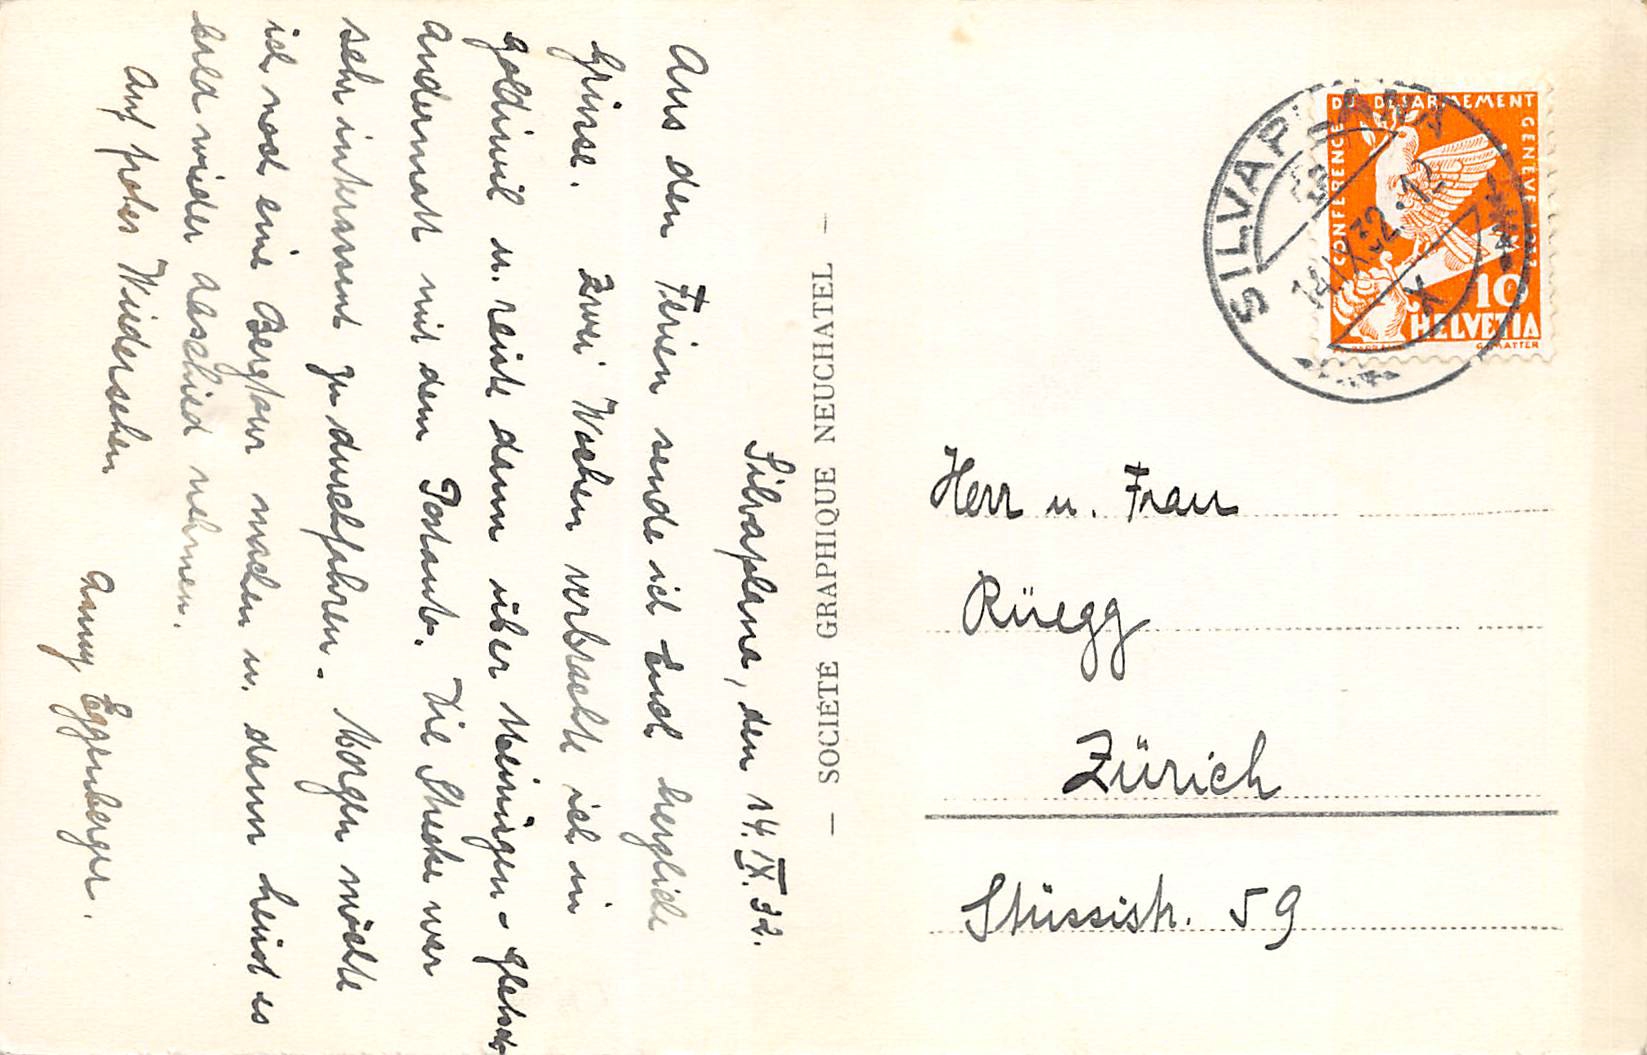 Silvaplana, den 14. IX. 32.
Aus den Ferien sende ich Euch herzliche
Grüsse. Zwei Wochen verbrachte ich in
goldiwil u. reiste dann über Meiringen - gletsch
Andermatt mit dem Postauto. Die Strecke war
sehr interessant zu durchfahren. Morgen möchte
ich noch eine Bergtour machen u. dann heisst es
bald wieder Abschied nehmen.
Auf frohes Wiedersehen
Anny Eggenberger.
— SOCIÉTÉ GRAPHIQUE NEUCHATEL —
CONFERENCE DU DESARMEMENT GENEVE
10
HELVETIA
SILVAPLANA
14.IX.32.12
Herr u. Frau
Rüegg
Zürich
Stüssistr. 59